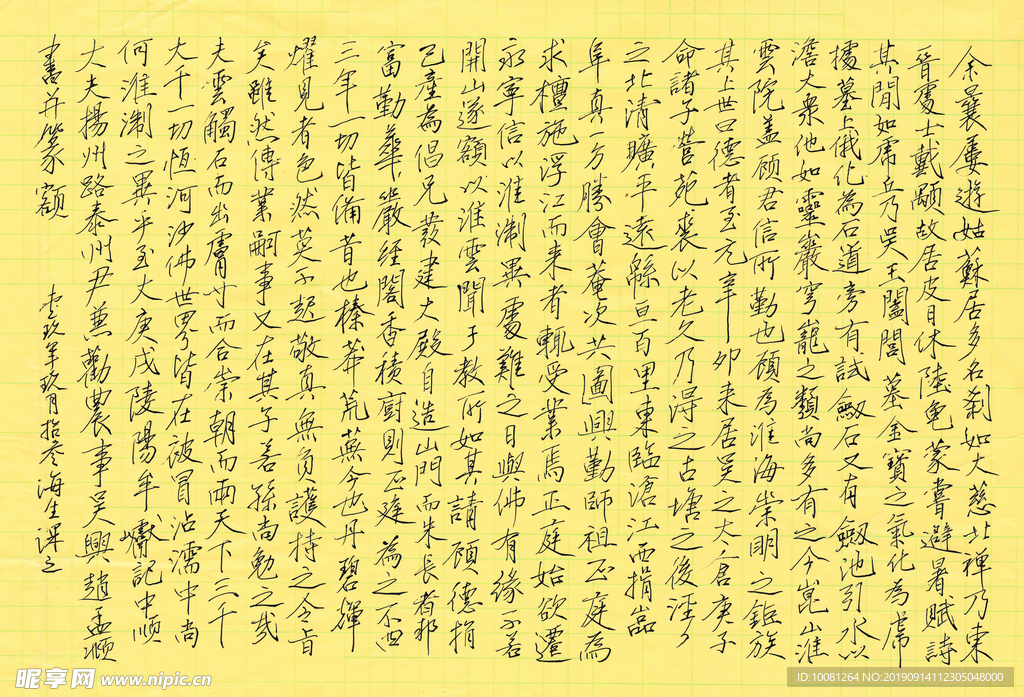 余曩屢遊姑蘇居多名剎如大慈北禪乃東
晉處士戴顒故居皮日休陸龜蒙嘗避暑賦詩
其間如虎丘乃吳王闔閭墓金寶之氣化為虎
據墓上俄化為石道旁有試劍石又有劍池引水以
澹大衆他如靈巖穹窿之類尚多有之今崑山淮
雲院盖顾君信所勤也顾為淮海崇明之鉅族
其上世曰德者至元辛卯来居吴之太倉庚子
命諸子營菟裘以老久乃得之古塘之後涇
之北清曠平遠緜亘百里東臨滄江西揖
阜真一方勝會菴次共圖興勤師祖正庭為
求檀施浮江而来者輒受業焉正庭始欲遷
永寧信以淮淛異處難之日與佛有緣不若
開山遂額以淮雲聞于教所如其請顾德捐
己產為倡兄發建大殿自造山門而朱長者邦
富勤華嚴經閣香積廚則正庭為之不四
三年一切皆備昔也榛莽荒蕪今也丹碧輝
燿見者色然莫不起敬真無負護持之令旨
矣雖然傳業嗣事又在其子若孫尚勉之哉
夫雲觸石而出膚寸而合崇朝而雨天下三千
大千一切恒河沙佛世界皆在被冒沾濡中尚
何淮淛之異乎至大庚戌陵陽牟巘記中順
大夫揚州路泰州尹兼勸農事吳興趙孟頫
書并篆額
壹玖年玖月拾叁海生課之
昵享网 www.nipic.cn
ID:10081264 NO:20190914112305048000